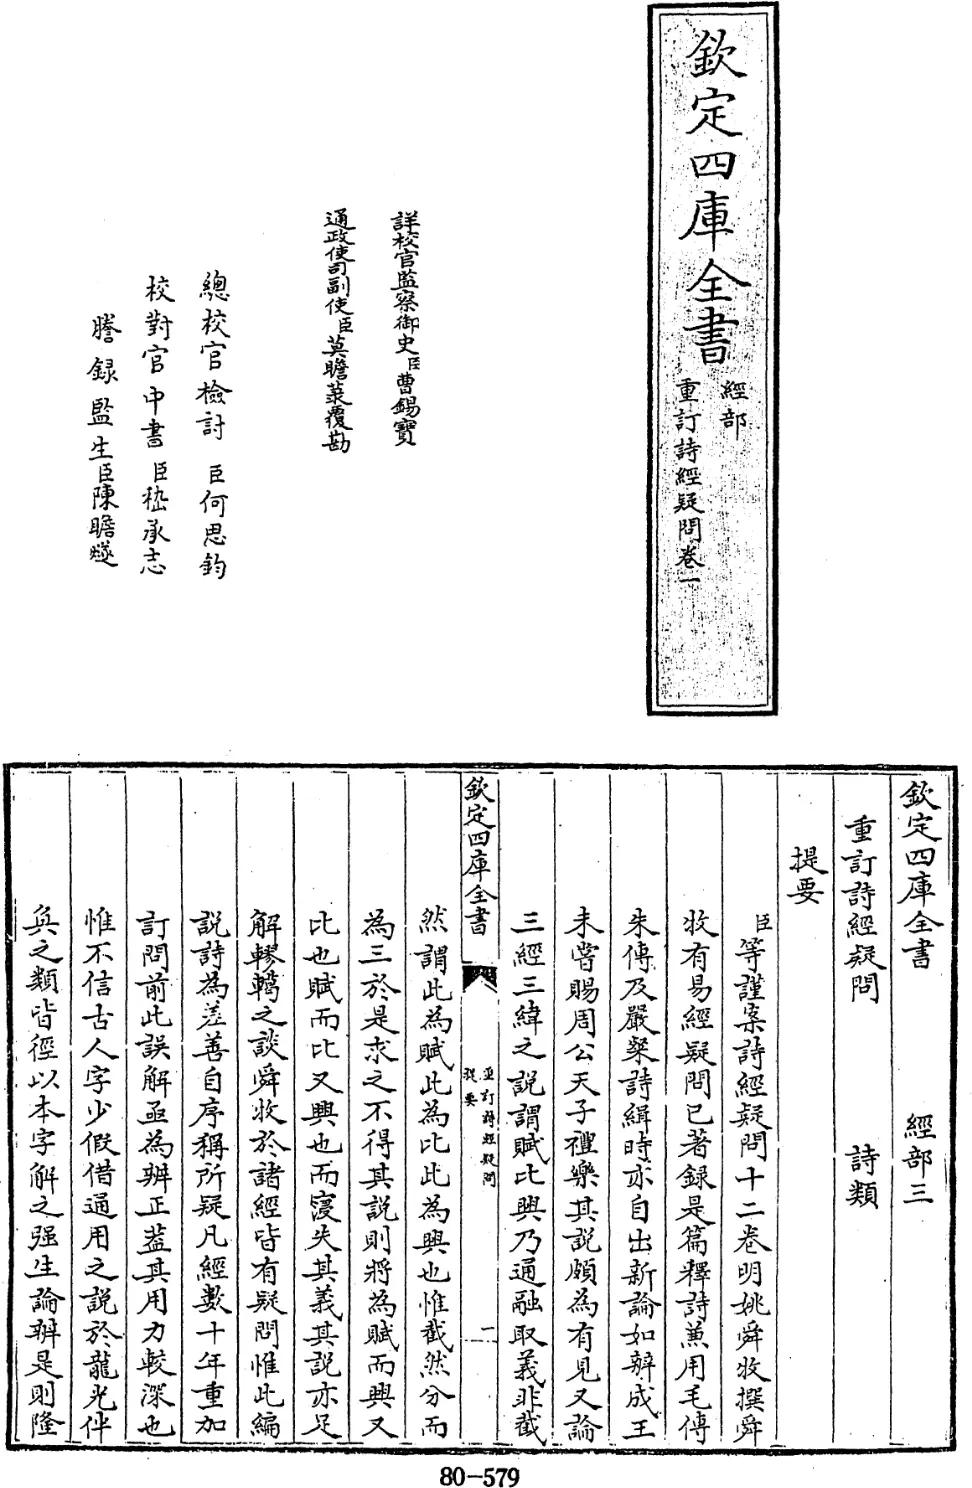 欽定四庫全書
經部
重訂詩經疑問卷一
詳校官監察御史臣曹錫寶
通政使司副使臣莫瞻菉覆勘
總校官檢討臣何思鈞
校對官中書臣嵇承志
謄錄監生臣陳瞻燧
欽定四庫全書 經部三
重訂詩經疑問 詩類
提要
臣等謹案詩經疑問十二卷明姚舜牧撰舜
牧有易經疑問已著録是篇釋詩兼用毛傳
朱傳及嚴粲詩緝時亦自出新論如辨成王
未嘗賜周公天子禮樂其説頗為有見又論
三經三緯之説謂賦比興乃通融取義非截
欽定四庫全書
重訂詩經疑問
提要
一
然謂此為賦此為比此為興也惟截然分而
為三於是求之不得其説則將為賦而興又
比也賦而比又興也而寖失其義其説亦足
解轇轕之談舜牧於諸經皆有疑問惟此編
説詩為差善自序稱所疑凡經數十年重加
訂問前此誤解亟為辨正葢其用力較深也
惟不信古人字少假借通用之説於龍光伴
奐之類皆徑以本字解之强生論辨是則隆
80-579